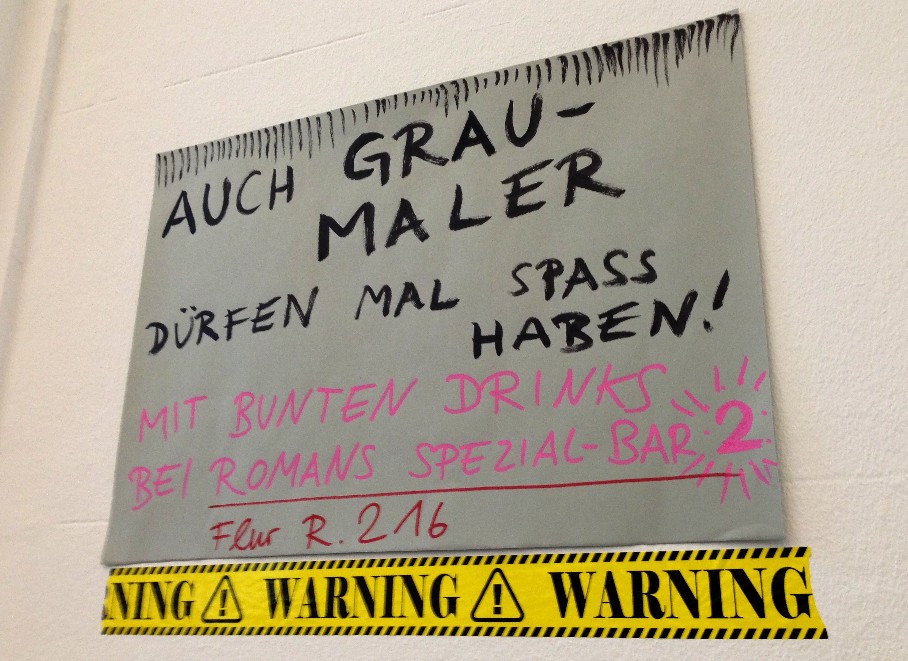 AUCH GRAU-
MALER
DÜRFEN MAL SPASS
HABEN!
MIT BUNTEN DRINKS
BEI ROMANS SPEZIAL-BAR 2
Flur R. 216
NING WARNING WARNING